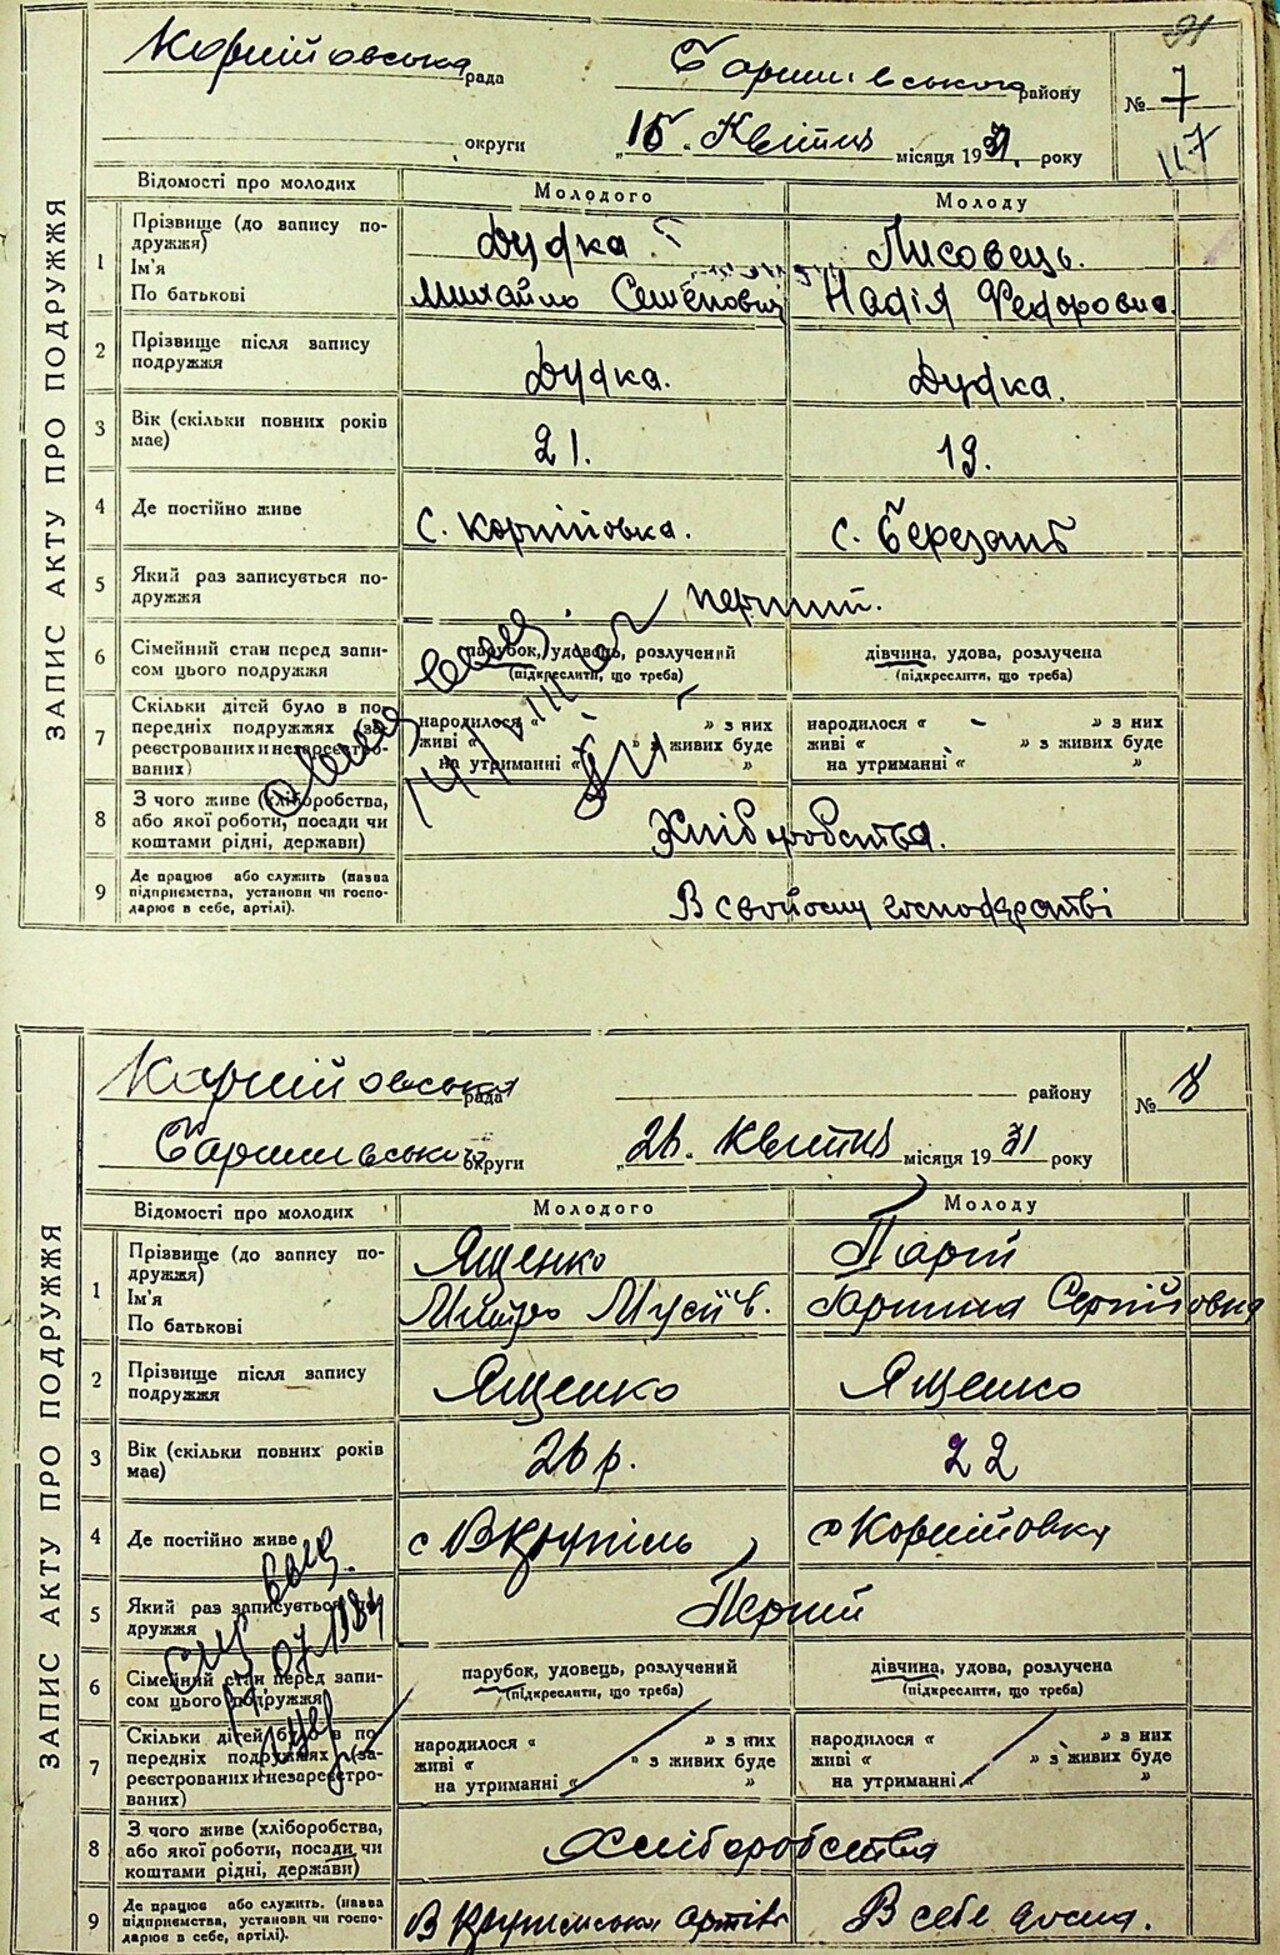 91
Корнійовська рада Баришівського району
№ 7
округи „15" Квітня місяця 1931 року
117
ЗАПИС АКТУ ПРО ПОДРУЖЖЯ
Відомості про молодих Молодого Молоду
1 Прізвище (до запису подружжя) Дудка Лисовець.
Ім'я
По батькові Михайло Семенович Надія Федоровна.
2 Прізвище після запису
подружжя Дудка. Дудка.
3 Вік (скільки повних років
має) 21. 19.
4 Де постійно живе с. Корнійовка. с. Березань
5 Який раз записується по-
дружжя перший.
6 Сімейний стан перед запи- парубок, удовець, розлучений дівчина, удова, розлучена
сом цього подружжя (підкреслити, що треба) (підкреслити, що треба)
7 Скільки дітей було в по-
передніх подружжях (за- народилося « » з них народилося « - » з них
реєстрованих и незареєстро- живі « » з живих буде живі « » з живих буде
ваних) на утриманні « » на утриманні « »
8 З чого живе (хліборобства,
або якої роботи, посади чи Хліборобства.
коштами рідні, держави)
9 Де працює або служить (назва
підприємства, установи чи госпо- В свойому господарстві
дарює в себе, артілі).
Корнійовська рада району
№ 8
Баришивський округи „26. Квітня місяця 1931 року
ЗАПИС АКТУ ПРО ПОДРУЖЖЯ
Відомості про молодих Молодого Молоду
1 Прізвище (до запису по- Ященко Парій
дружжя)
Ім'я Мусіїв. Сергійовна
По батькові
2 Прізвище після запису
подружжя Ященко Ященко
3 Вік (скільки повних років
має) 26 р. 22
4 Де постійно живе с В Крупіль с Корнійовка
5 Який раз записується по-
дружжя Перший
6 Сімейний стан перед запи- парубок, удовець, розлучений дівчина, удова, розлучена
сом цього подружжя (підкреслити, що треба) (підкреслити, що треба)
7 Скільки дітей було в по-
передніх подружжях (за- народилося « » з них народилося « » з них
реєстрованих и незареєстро- живі « » з живих буде живі « » з живих буде
ваних) на утриманні « » на утриманні « »
8 З чого живе (хліборобства,
або якої роботи, посади чи Хліборобства
коштами рідні, держави)
9 Де працює або служить. (назва
підприємства, установи чи госпо- В себе дома.
дарює в себе, артілі).